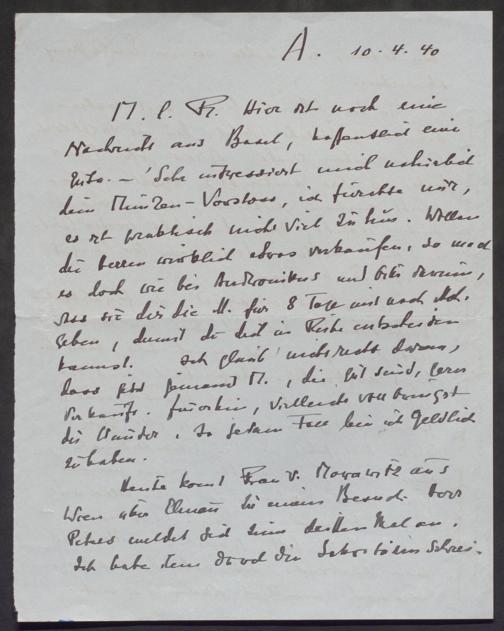 A. 10.4.40
M. l. Fr. Hier ist noch eine
Nachricht aus Basel, hoffentlich eine
gute. – Sehr interessiert mich natürlich
dein Münzen-Vorstoss, ich fürchte nur,
es ist praktisch nicht viel zu tun. Wollen
die Herren wirklich etwas verkaufen, so mach
es doch wie bei Andronikus und
dass sie dir die M. für 8 Tage mit nach
geben, damit du dich in Ruhe entscheiden
kannst. Ich glaub' nicht recht daran,
dass jetzt jemand M., die gut sind, gern
verkauft. Immerhin, vielleicht vollbringst
du Wunder. In jedem Fall bin ich geldlich
zu haben.
Heute kommt Frau v. Morawitz aus
Wien über zu einem Besuch. Herr
Peters meldet sich zum dritten Mal an.
Ich habe ihm durch die Sekretärin schrei-